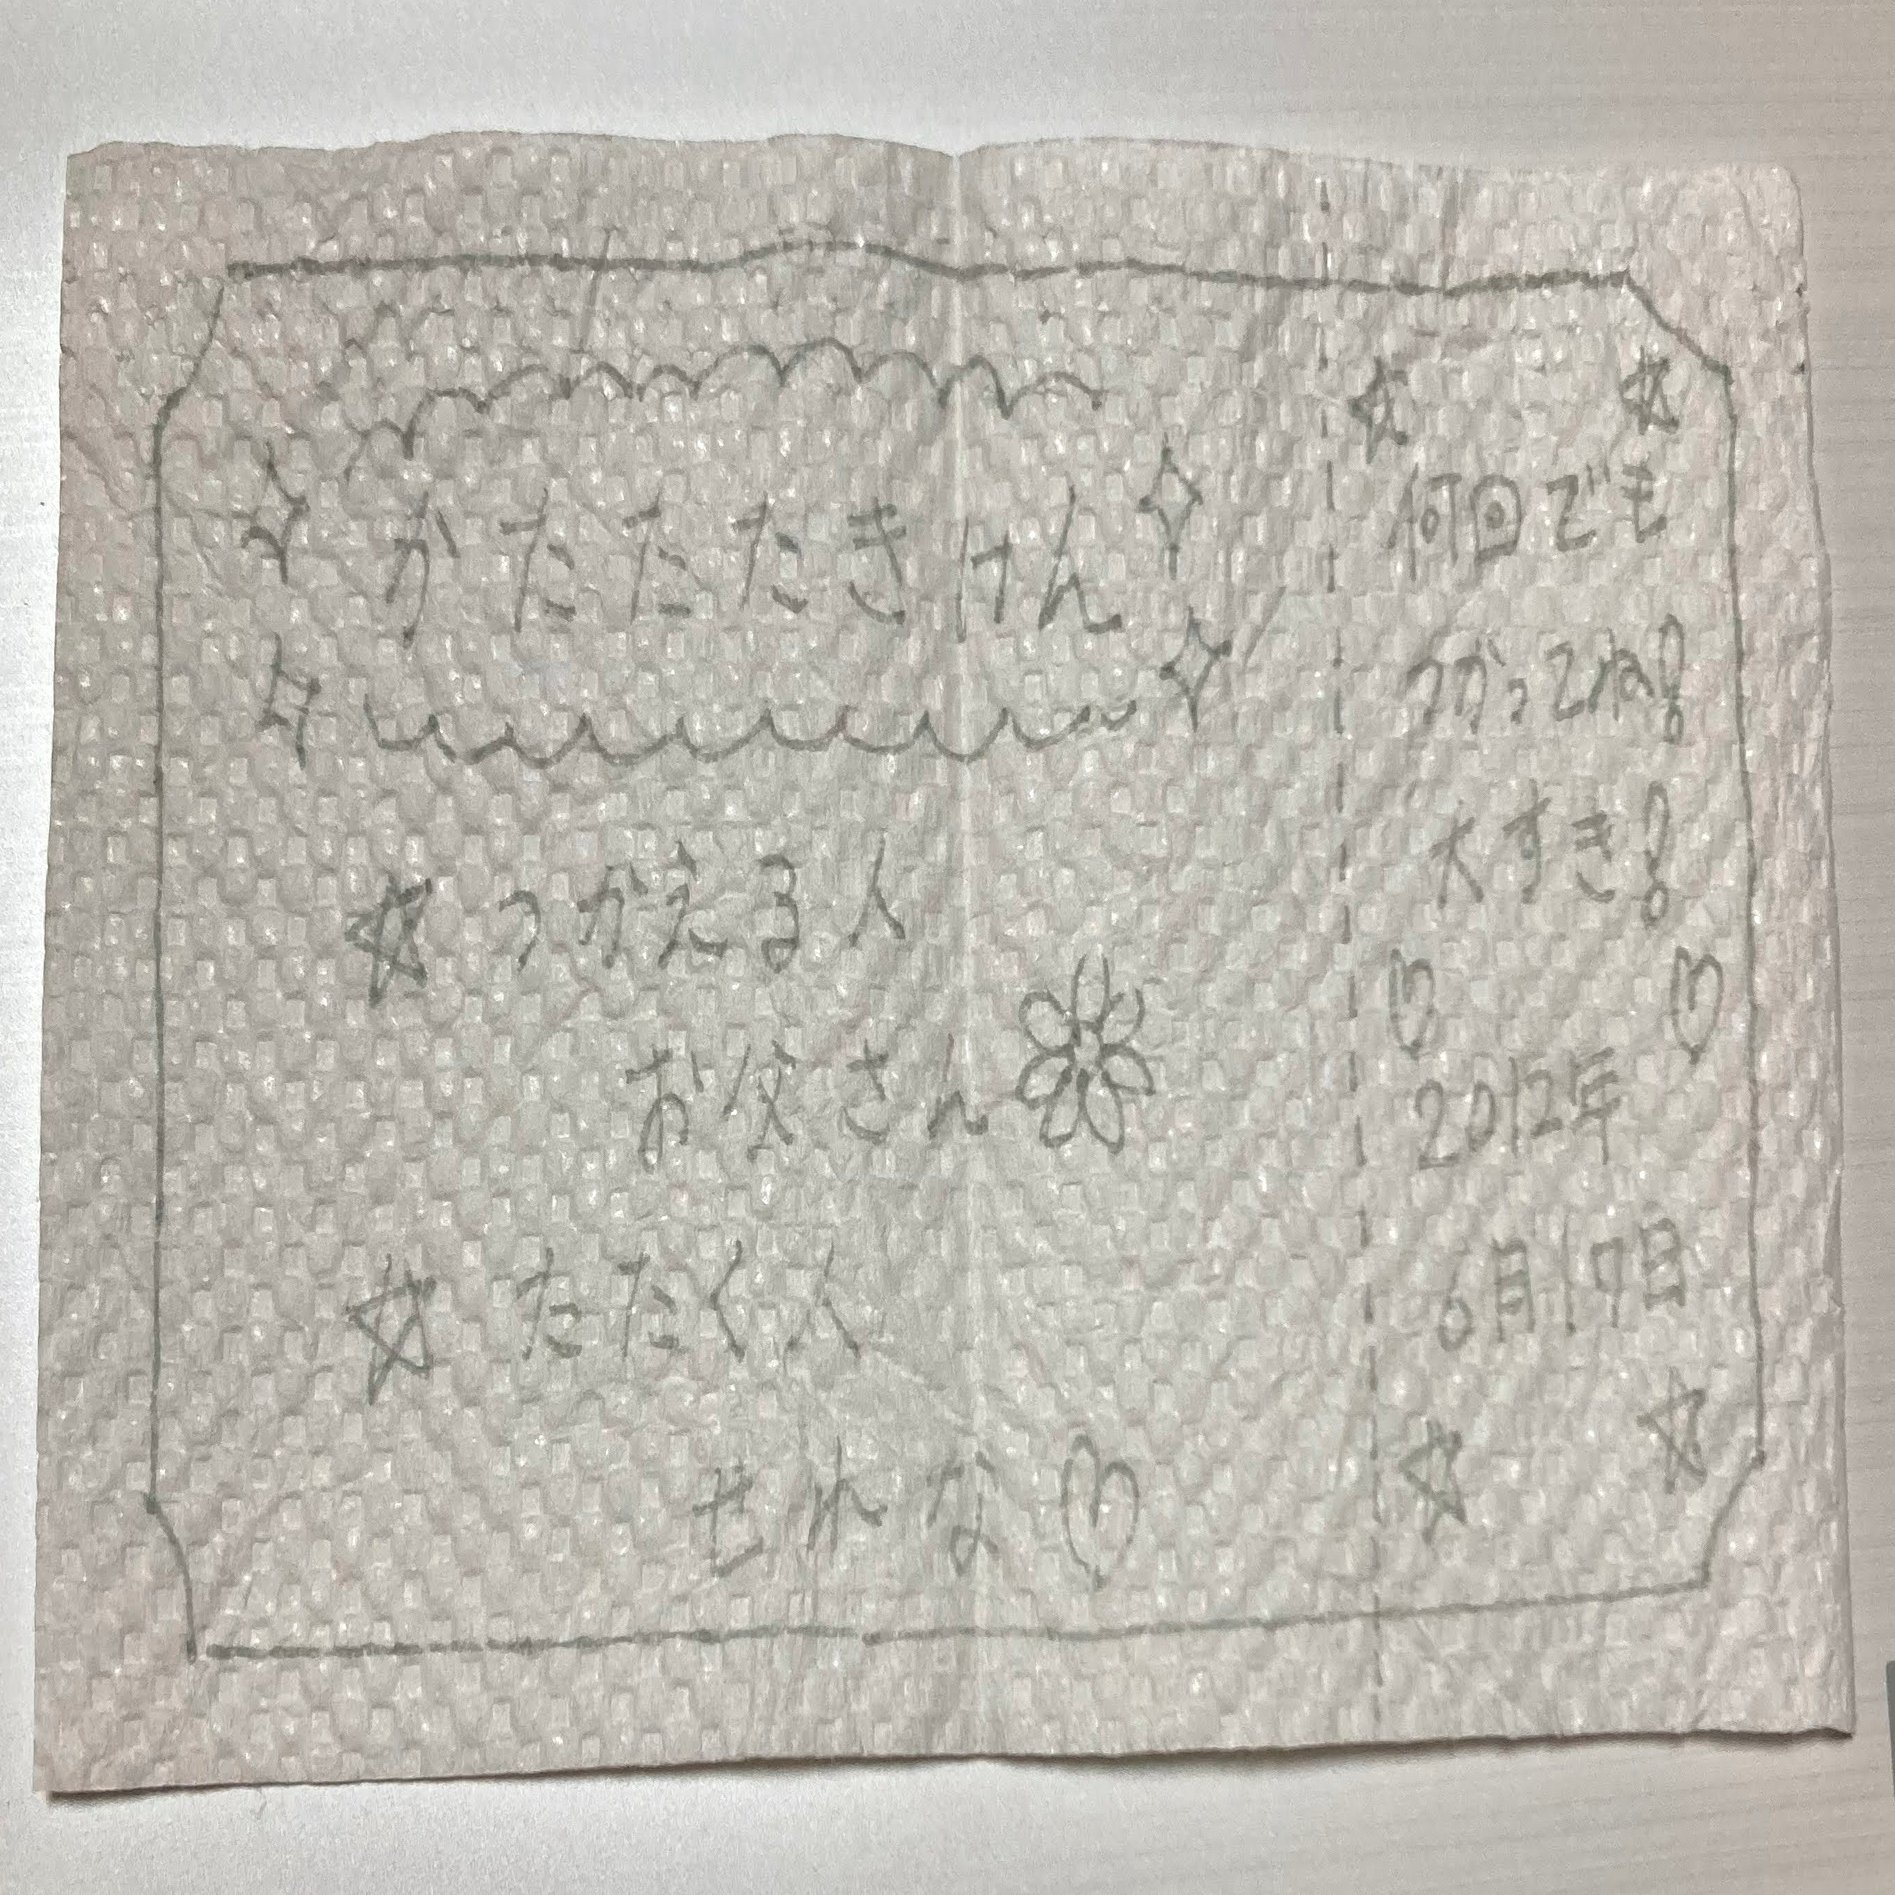 かたたたきけん
つかえる人
お父さん
たたく人
せれな
何回でも
つかってね!
大すき!
2012年
6月17日